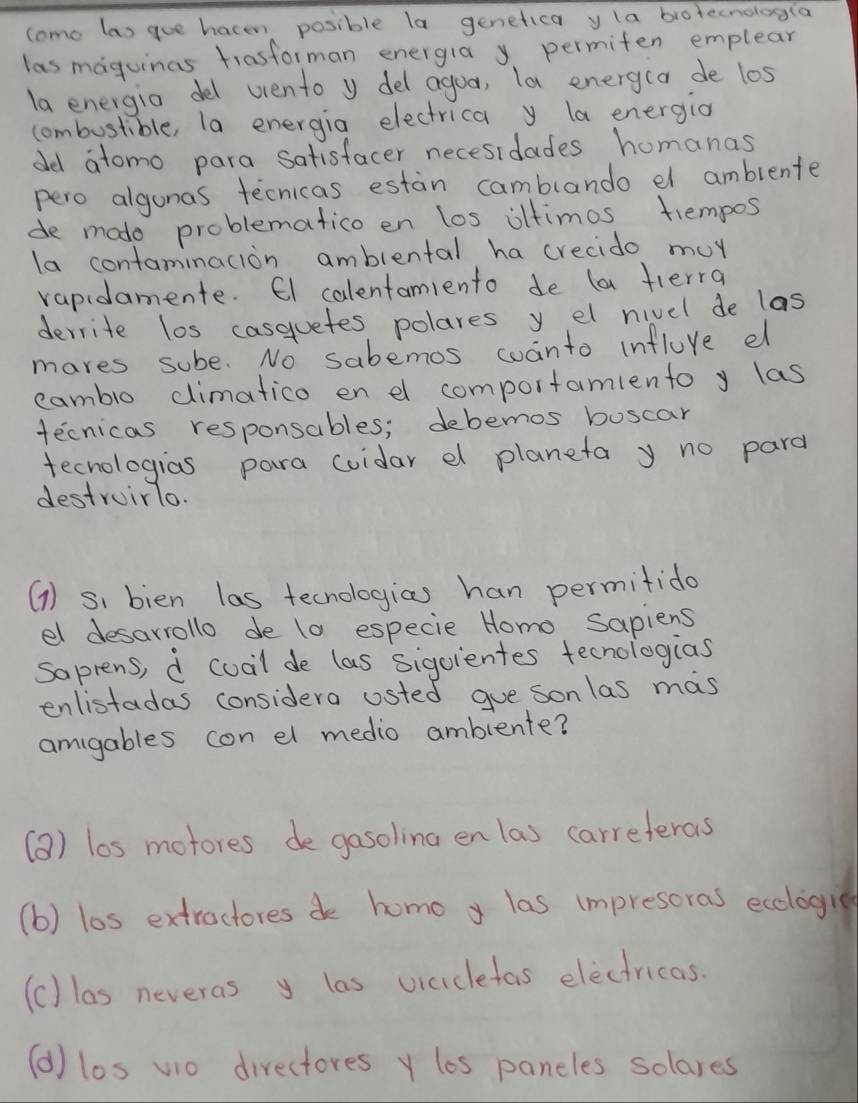 como las que hacen posible la genetica y la biotecnología
las máquinas trasforman energia y permiten emplear
la energia del viento y del agua, la energia de los
combustible, la energia electrica y la energia
del átomo para satisfacer necesidades humanas
pero algunas técnicas están cambiando el ambiente
de modo problematico en los últimos tiempos
la contaminación ambiental ha crecido muy
rapidamente. El calentamiento de la tierra
derrite los casquetes polares y el nivel de las
mares sube. No sabemos cuánto influye el
cambio climatico en el comportamiento y las
técnicas responsables; debemos buscar
tecnologias para cuidar el planeta y no para
destruirlo.
(1) Si bien las tecnologias han permitido
el desarrollo de la especie Homo Sapiens
Sapiens, ¿ cuál de las siguientes tecnologías
enlistadas considera usted que son las más
amigables con el medio ambiente?
(a) los motores de gasolina en las carreteras
(b) los extractores de humo y las impresoras ecológic
(c) las neveras y las vicicletas eléctricas.
(d) los vio directores y los paneles solares